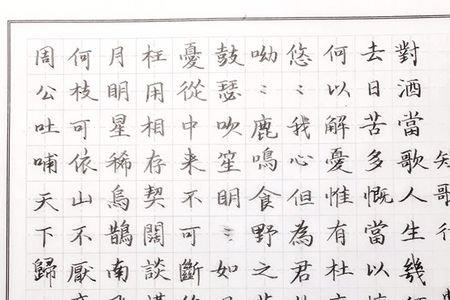 對酒當歌人生幾
去日苦多慨當以
何以解憂惟有杜
悠〻我心但為君
呦〻鹿鳴食野之
鼓瑟吹笙明〻如
憂從中来不可斷
枉用相存契闊談
月明星稀烏鵲南
何枝可依山不厭
周公吐哺天下歸